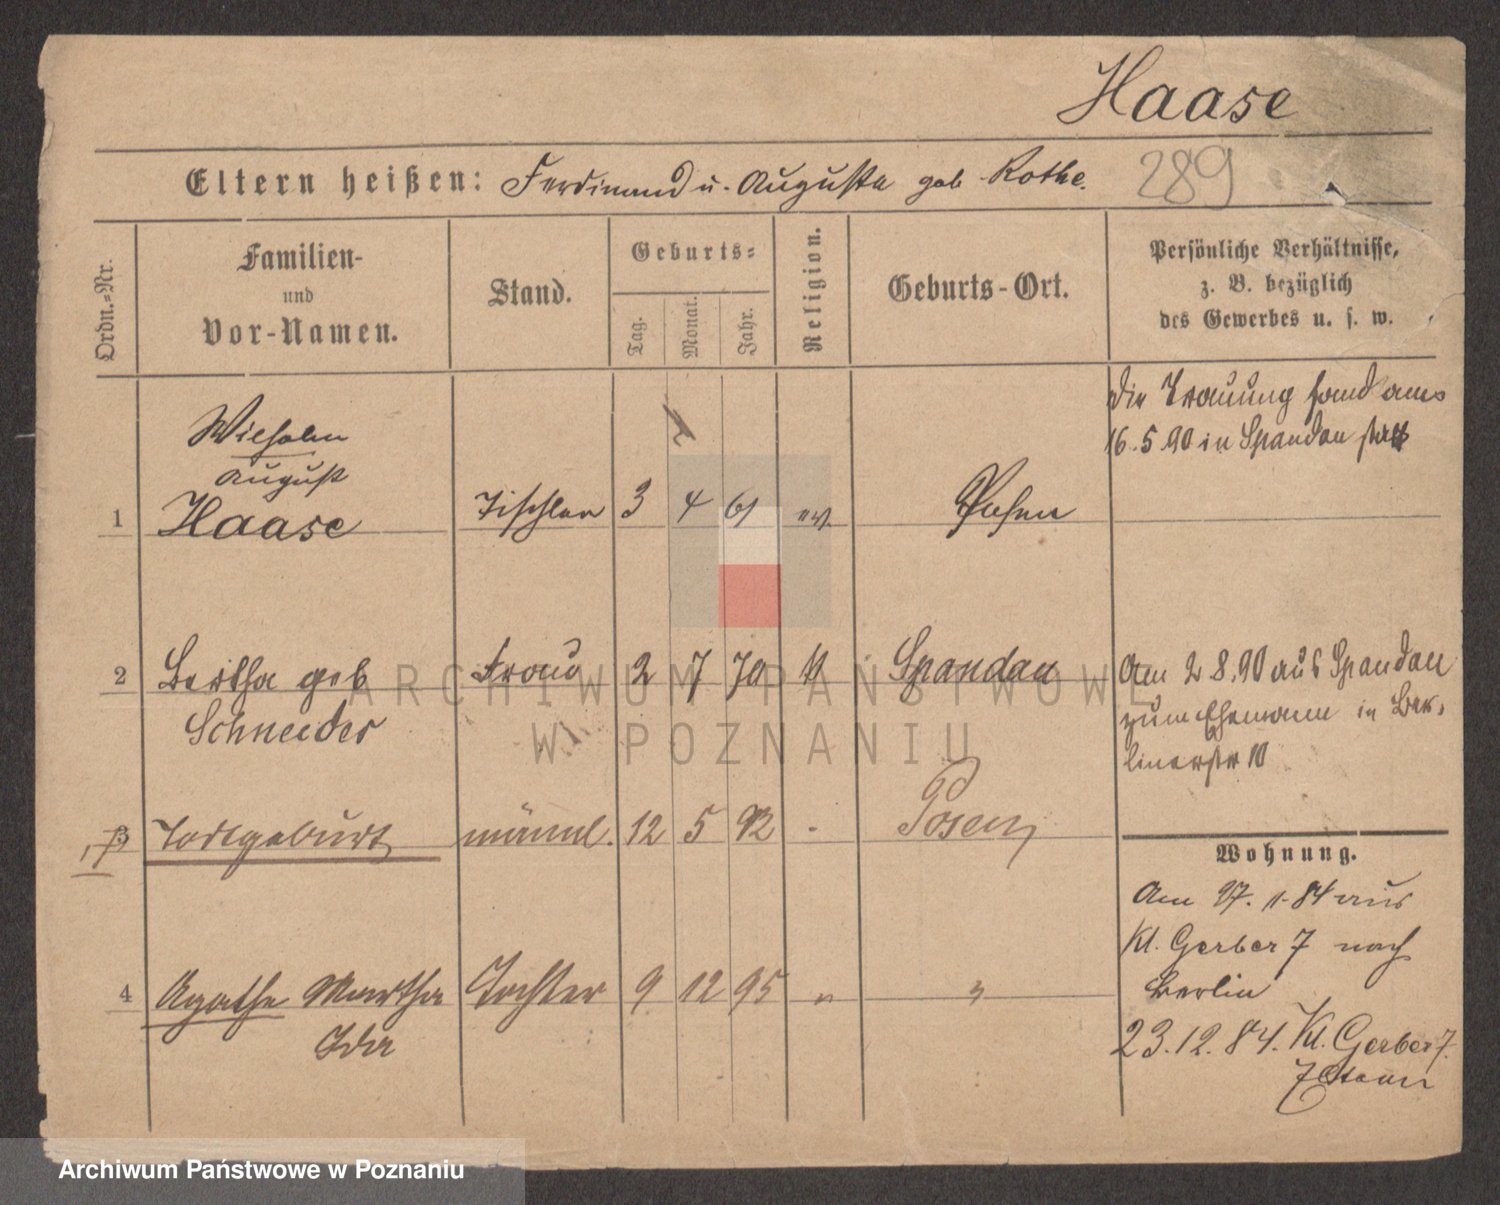 Haase
Eltern heißen: Ferdinand u. Augusta geb Rothe.
289
Ordn.-Nr.
Familien-
und
Vor-Namen.
Stand.
Geburts-
Tag.
Monat.
Jahr.
Religion.
Geburts-Ort.
Persönliche Verhältnisse,
z. B. bezüglich
des Gewerbes u. s. w.
Die Trauung fand am
16.5.90 in Spandau statt
Wilhelm
August
1 Haase Tischler 3 4 61 ev. Posen
2 Bertha geb Frau 2 7 70 Spandau
Schneider
Am 2 8.90 aus Spandau
zum Ehemann in Ber-
linerstr 10
3 Todtgeburt männl. 12 5 92 - Posen
Wohnung.
Am 27. 11. 84 aus
Kl. Gerber 7 nach
Berlin
4 Agathe Martha Tochter 9 12 95 " "
Ida
23.12.84. Kl. Gerber 7.
ARCHIWUM PAŃSTWOWE
W POZNANIU
Archiwum Państwowe w Poznaniu